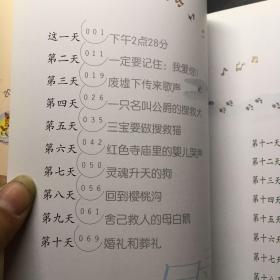 这一天 001 下午2点28分
第二天 011 一定要记住：我爱你！
第三天 019 废墟下传来歌声
第四天 026 一只名叫公爵的搜救犬
第五天 035 三宝要做搜救猫
第六天 042 红色寺庙里的婴儿哭声
第七天 050 灵魂升天的狗
第八天 056 回到樱桃沟
第九天 061 舍己救人的母白鹅
第十天 069 婚礼和葬礼
第十一天
第十二天
第十三天
第十四天
第十五天
第十六天
第十七天